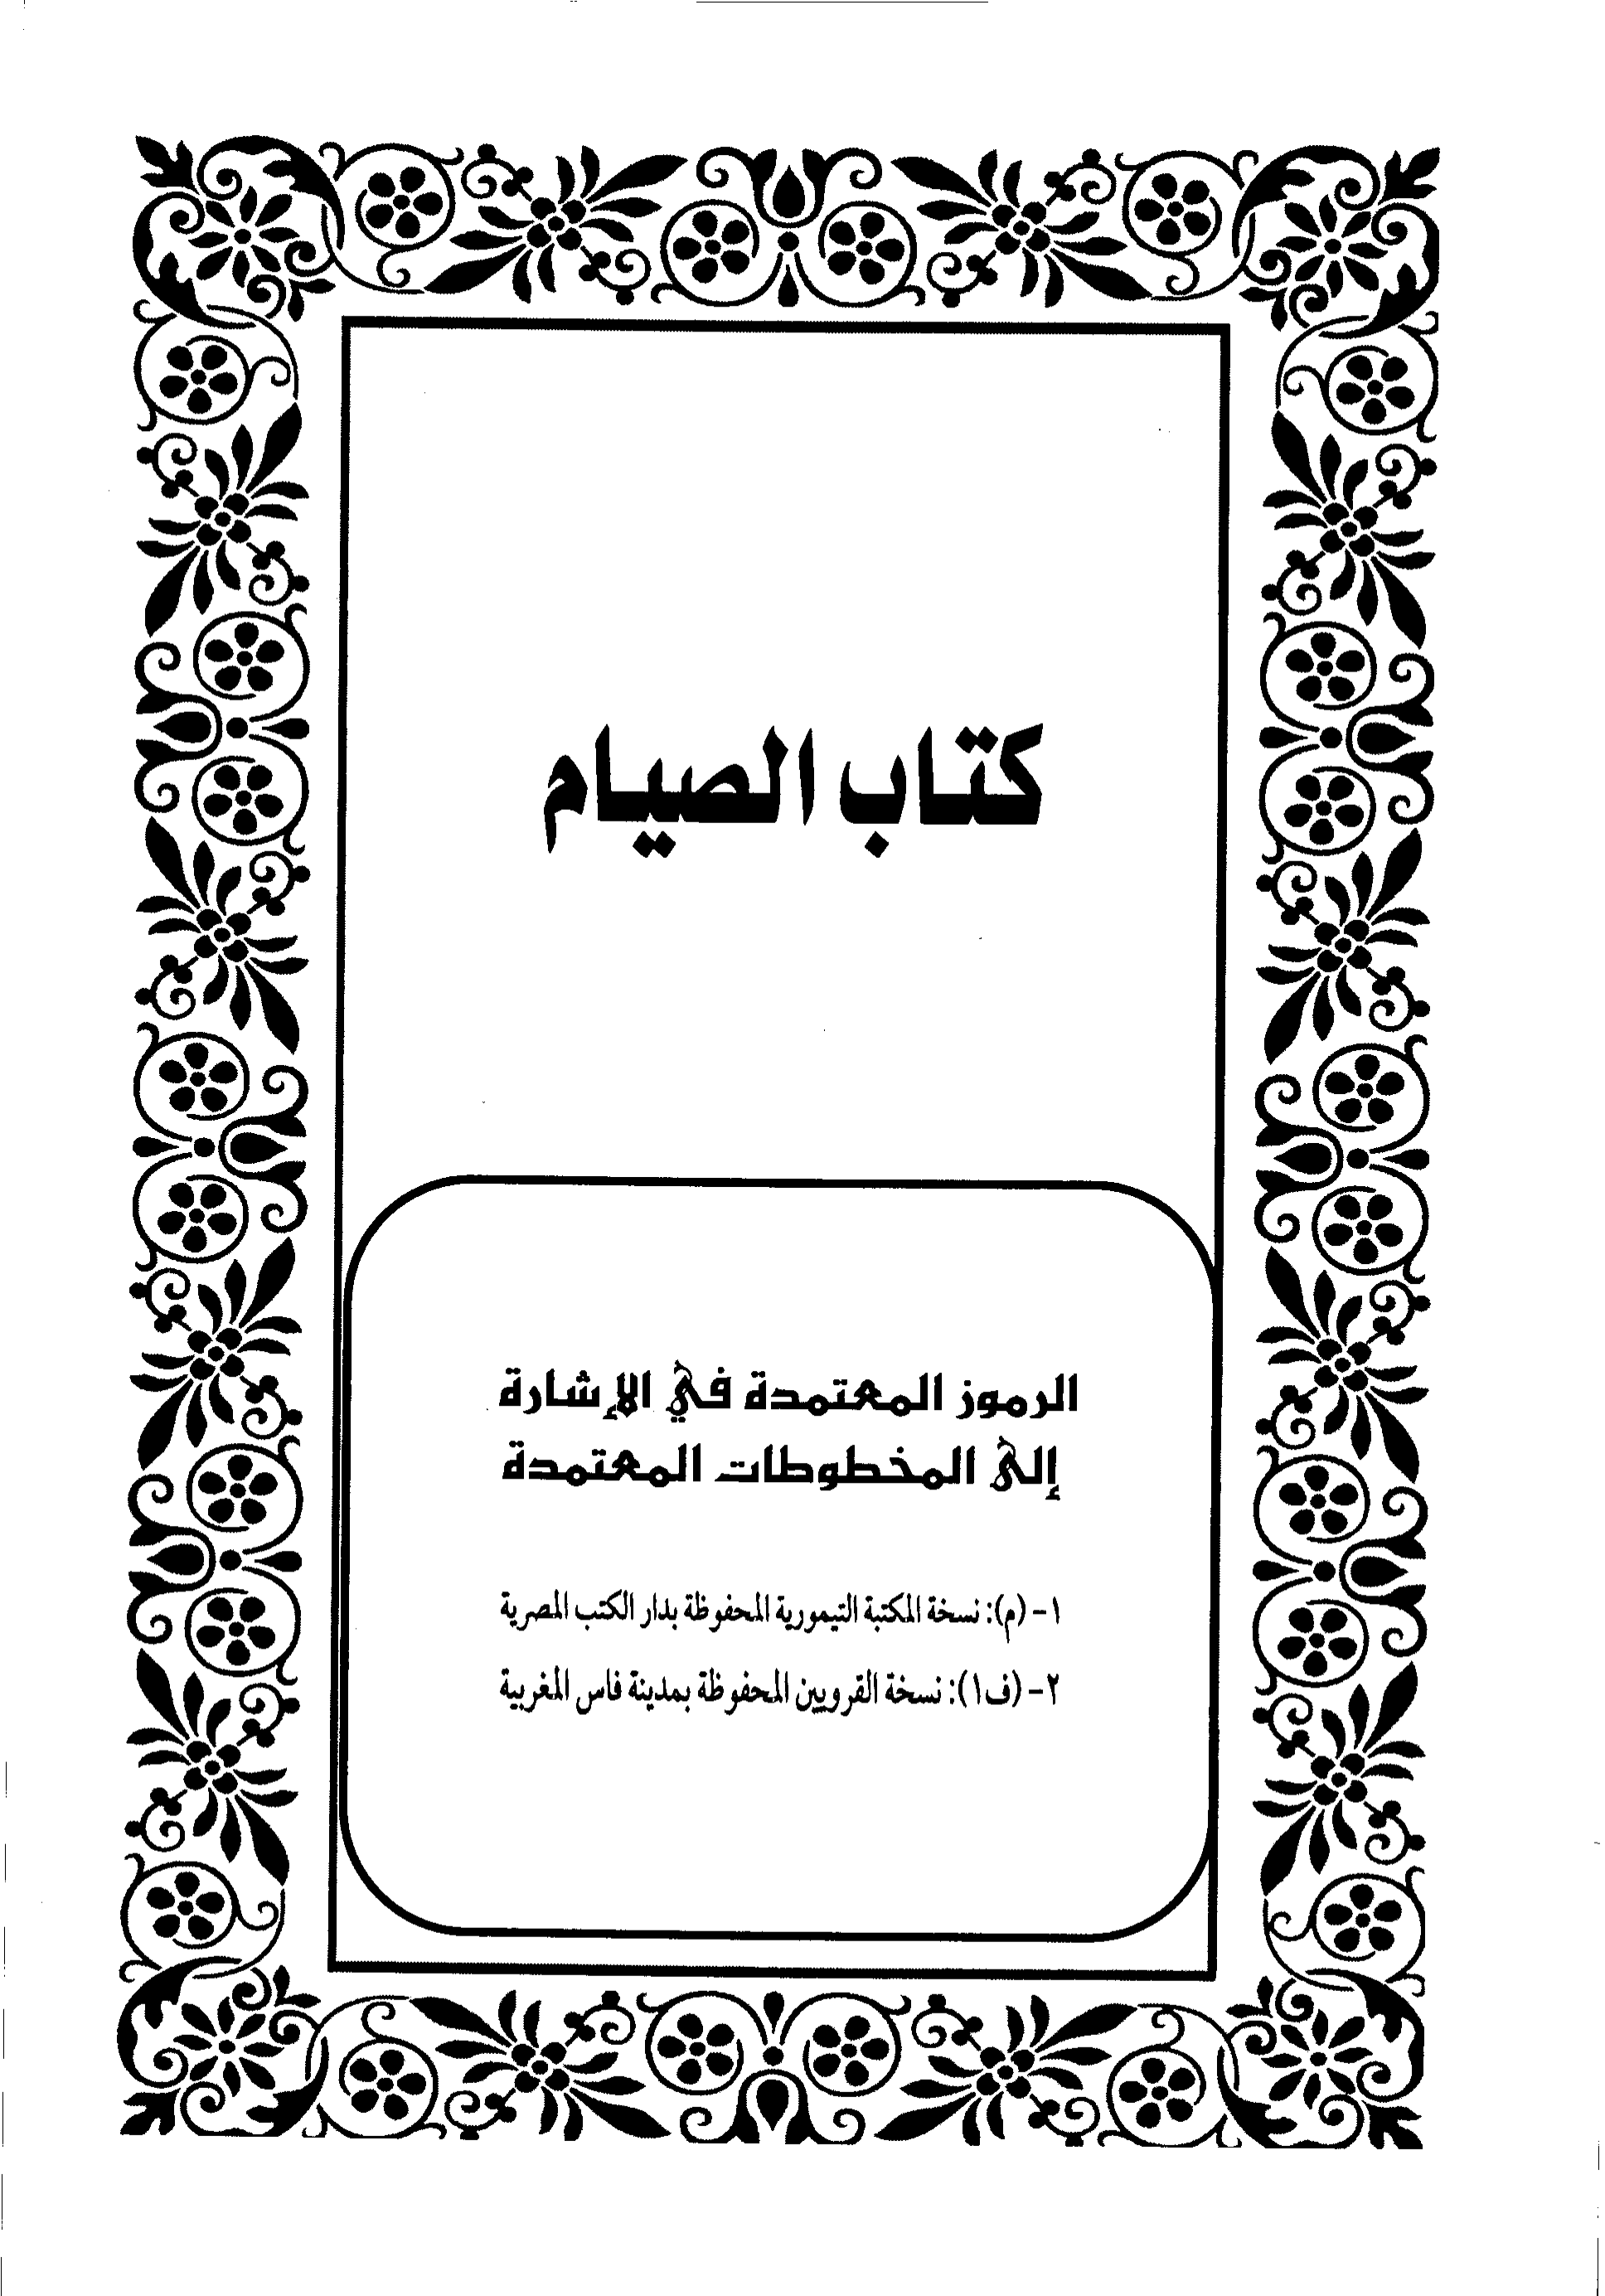 كتاب الصيام
الرموز المعتمدة في الإشارة
إلى المخطوطات المعتمدة
١- (م): نسخة المكتبة التيمورية المحفوظة بدار الكتب المصرية
٢- (ف١): نسخة القرويين المحفوظة بمدينة فاس المغربية